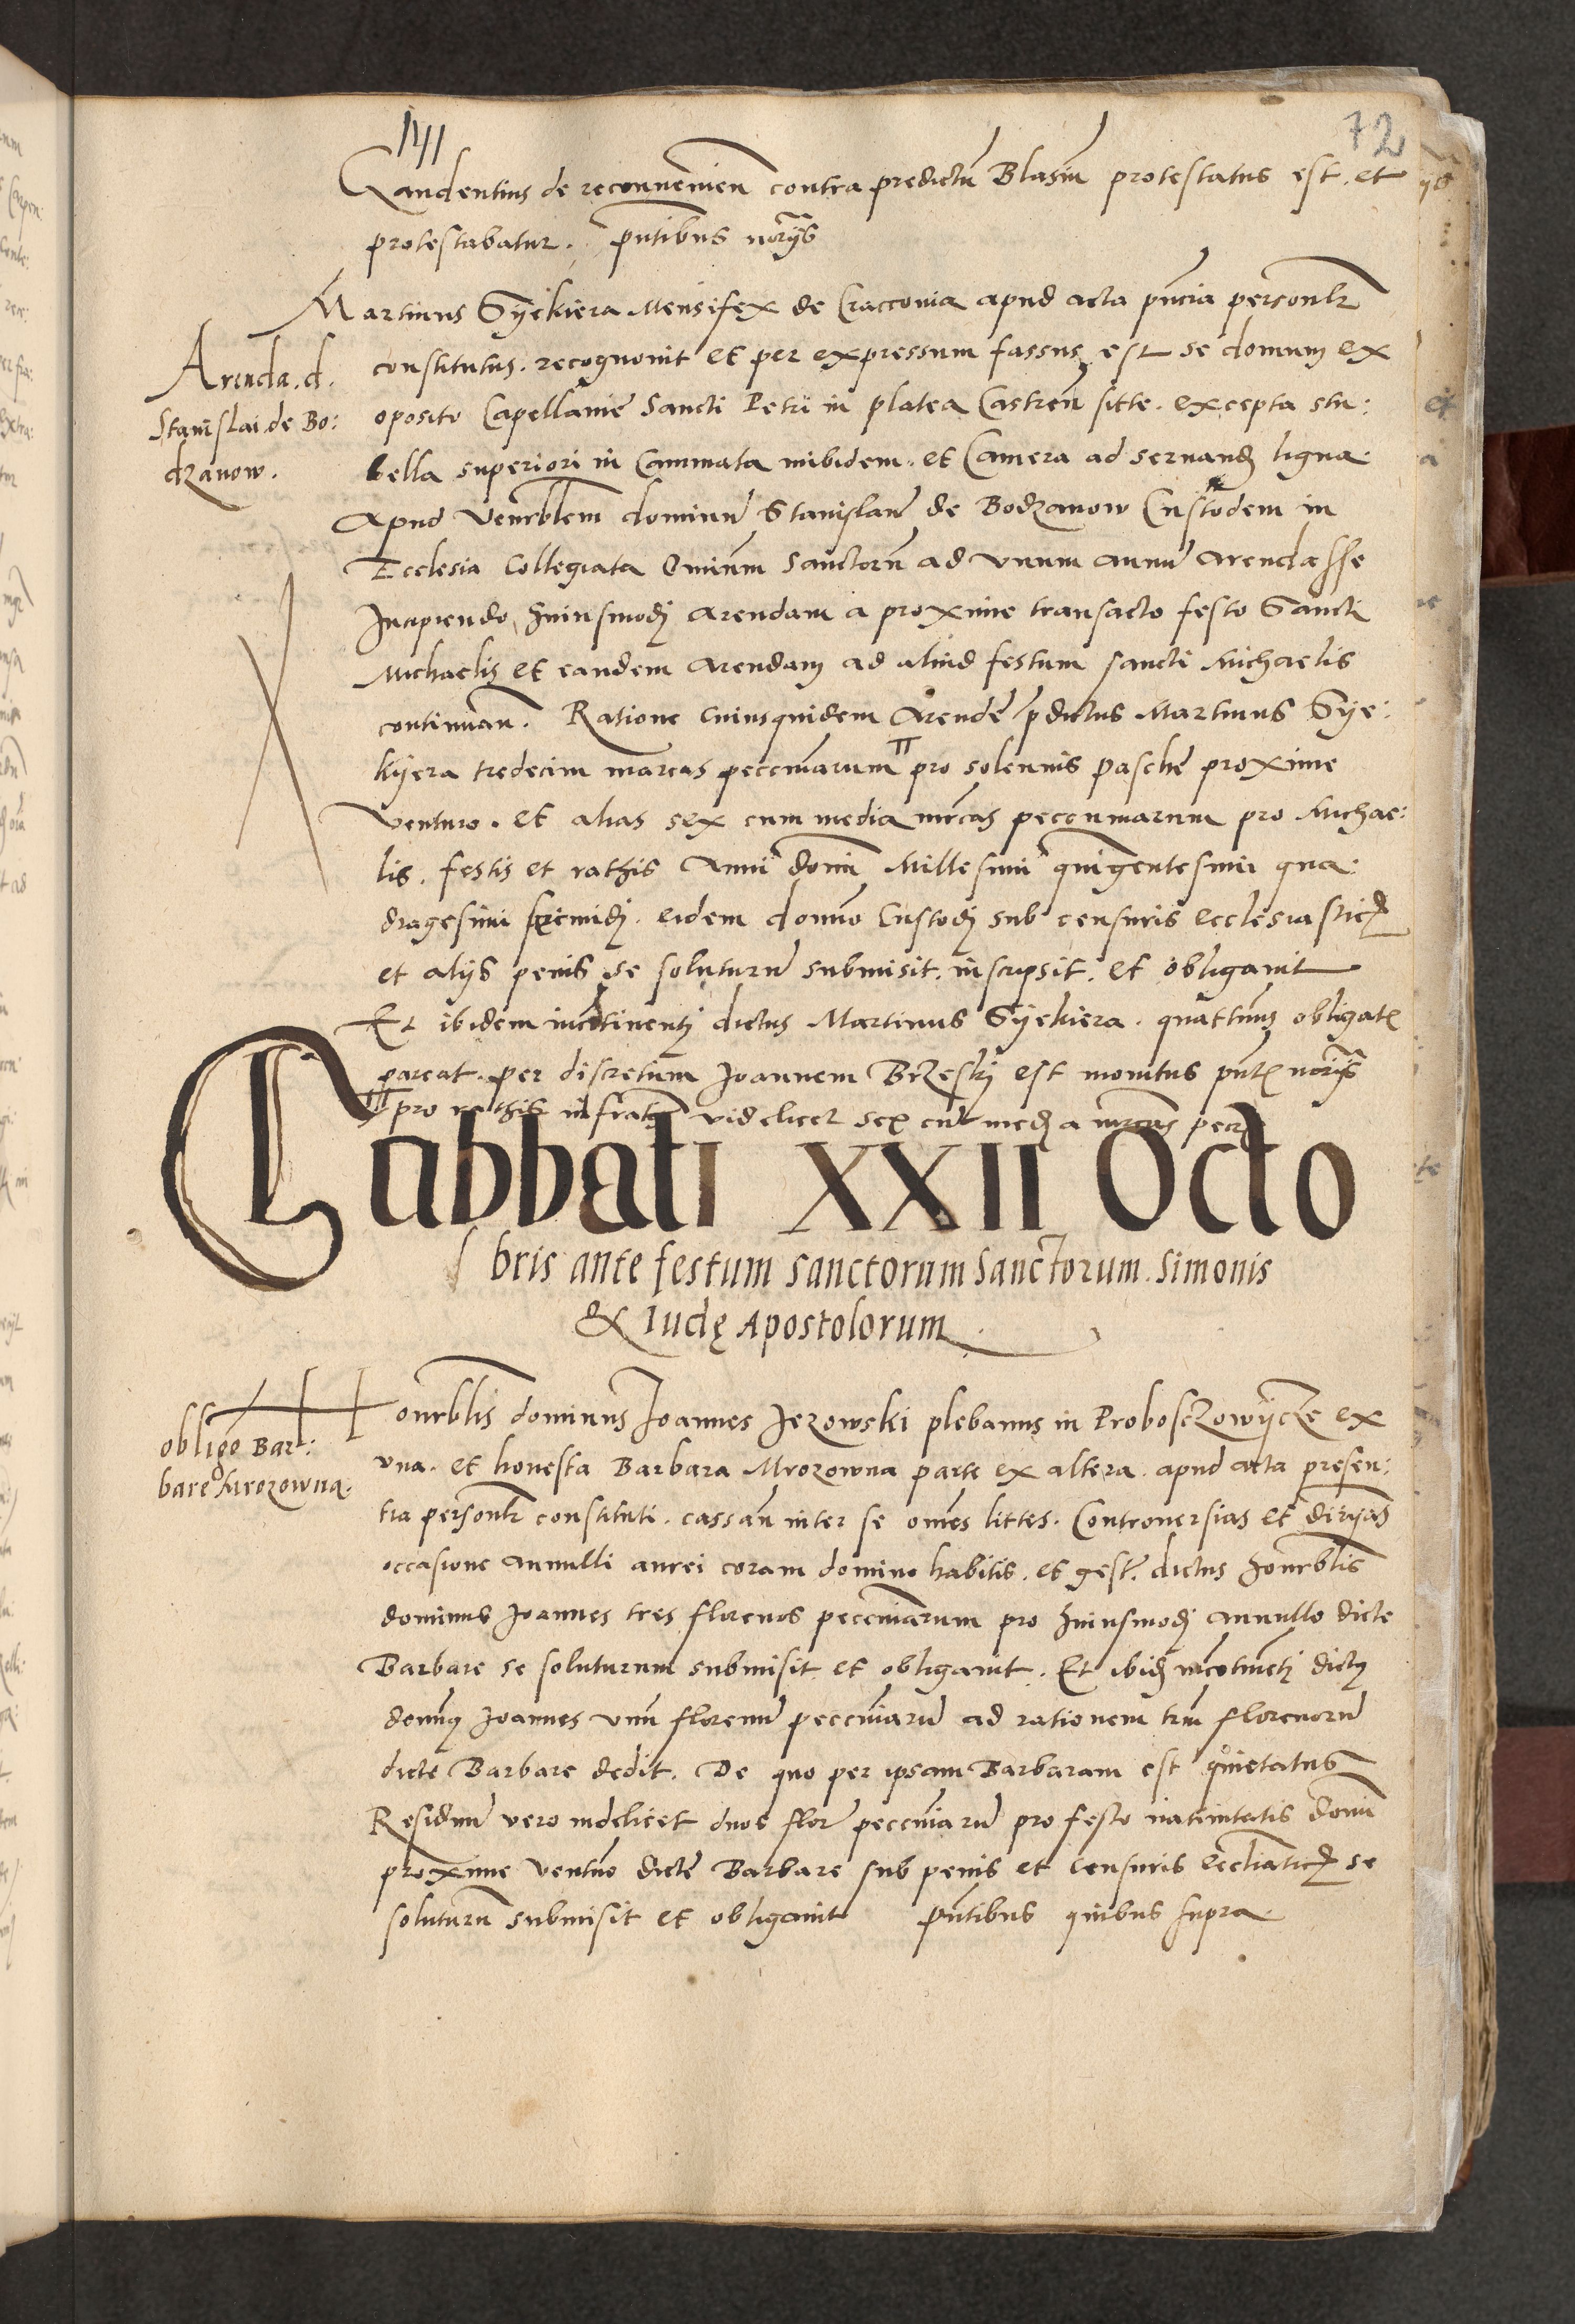 72
Gaudentius de reconvenien contra predictũ Blasiũ protestatus est. et
protestabatur. pñtibus norÿs
Martinus Syekiera Mensifex de Craccovia apud acta pñcia personlr
Arenda. d.
Stanislai. de Bo:
dzanow.
constitutus. recognouit et per expressum fassus est se domum ex
oposito Capellanie Sancti Petri in platea Castren sitte. excepta stu:
bella superiori in Caminata inibidem. et Camera ad seruand ligna.
Apud Venrblem dominũ Stanislaũ de Bodzanow Custodem in
Ecclesia Collegiata Ominũm Sanctorũ ad vnum annũ arendasse
Incipiendo huiusmodi arendam a proxime transacto festo Sancti
Michaelis et eandem arendam ad aliud festum sancti Michaelis
continuan. Ratione cuiusquidem Arende p̃dictus Martinus Sye:
kÿera tredecim marcas peccuniarum pro solennis pasche proxime
venturo. et alias sex cum media mrcas peccuniarum pro Michae:
lis. festis et rathis Anni doñi Millesimi quĩgentesimi qua:
dragesimi eidem domno Custodi sub censuris ecclesiastic
et alÿs penis se soluturũ submisit. inscripsit. et obligauit
Et ibidem incõtinenti dictus Martinus Syekiera. quattũus obligat
pareat. per discretum Joannem Brzeski est monitus pñt norÿs
pro rathis infrat videlicet sex cũ media mrcas pecc
Sabbati XXII Octo
bris ante festum sanctorum Sanctorum. Simonis
& Iudę Apostolorum
obligõ Bar:
bare Mrozowna.
Honrblis dominus Joannes Jezowski plebanus in Proboszowÿcze ex
vna. et honesta Barbara Mrozowna parte ex altera. apud acta presen:
tia personlr constituti. cassañ inter se om̃es littes. Controuersias et
occasione annulli aurei coram domino habitis. et gest. dictus honrblis
dominus Joannes tres florenos peccuniarum pro huiusmodi annullo dicte
Barbare se soluturum submisit et obligauit. Et ibid incõtinẽti dictus
domnus Joannes vnũ florenũ peccuniarũ ad rationem triũ florenorũ
dicte Barbare dedit. De quo per ipsam Barbaram est quietatus
Residuũ vero videlicet duos flor peccuniarũ pro festo natiuitatis doñi
proxime ventũo dicte Barbare sub penis et censuris eccliastic se
soluturũ submisit et obligauit pñtibus quibus supra